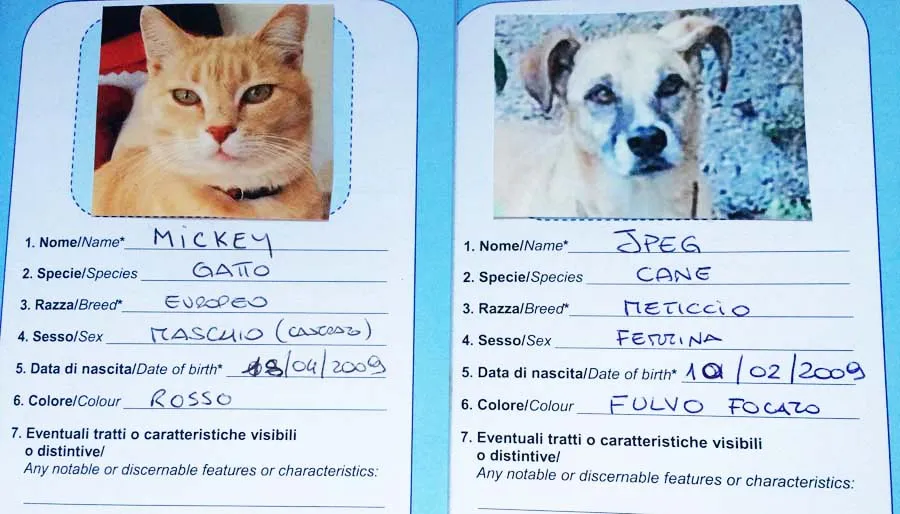 1. Nome/Name* MICKEY
2. Specie/Species GATTO
3. Razza/Breed* EUROPEO
4. Sesso/Sex MASCHIO (CASTRATO)
5. Data di nascita/Date of birth* /04/2009
6. Colore/Colour ROSSO
7. Eventuali tratti o caratteristiche visibili
o distintive/
Any notable or discernable features or characteristics:
1. Nome/Name* JPEG
2. Specie/Species CANE
3. Razza/Breed* METICCIO
4. Sesso/Sex FEMMINA
5. Data di nascita/Date of birth* /02/2009
6. Colore/Colour FULVO FOCATO
7. Eventuali tratti o caratteristiche visibili
o distintive/
Any notable or discernable features or characteristics: